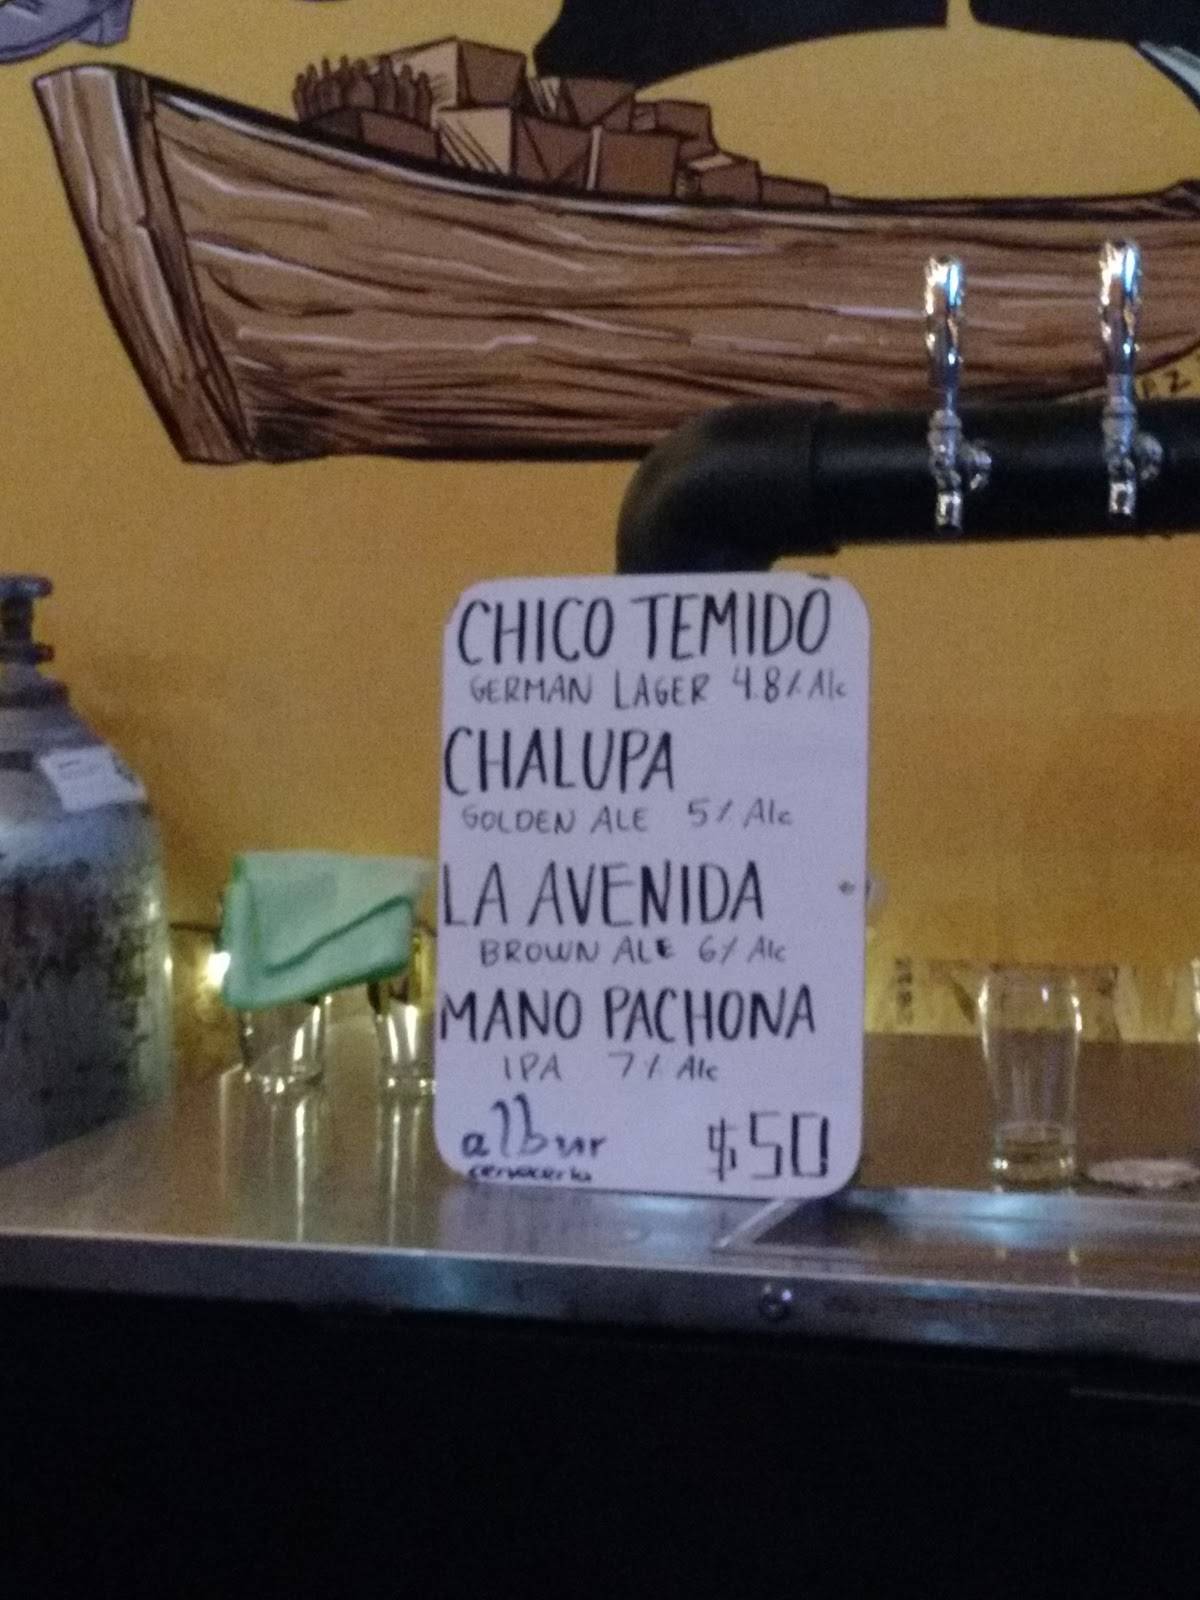 CHICO TEMIDO
GERMAN LAGER 4.8% Alc
CHALUPA
GOLDEN ALE 5% Alc
LA AVENIDA
BROWN ALE 6% Alc
MANO PACHONA
IPA 7% Alc
albur
cervecería
$50